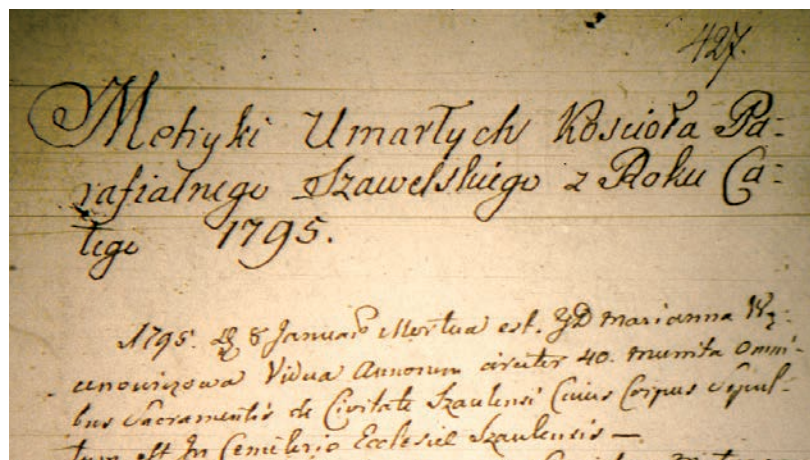 427.
Metryki Umarłych Kościoła Pa:
rafialnego Szawelskiego z Roku Ca:
łego 1795.
1795. 8 Januar Mortua est. GD Marianna
Vidua Annorum circiter 40. munita Omni-
bus Sacramentis de Civitate Szaulensi Cuius Corpus Sepul-
tum est In Cemiterio Ecclesiæ Szaulensis —